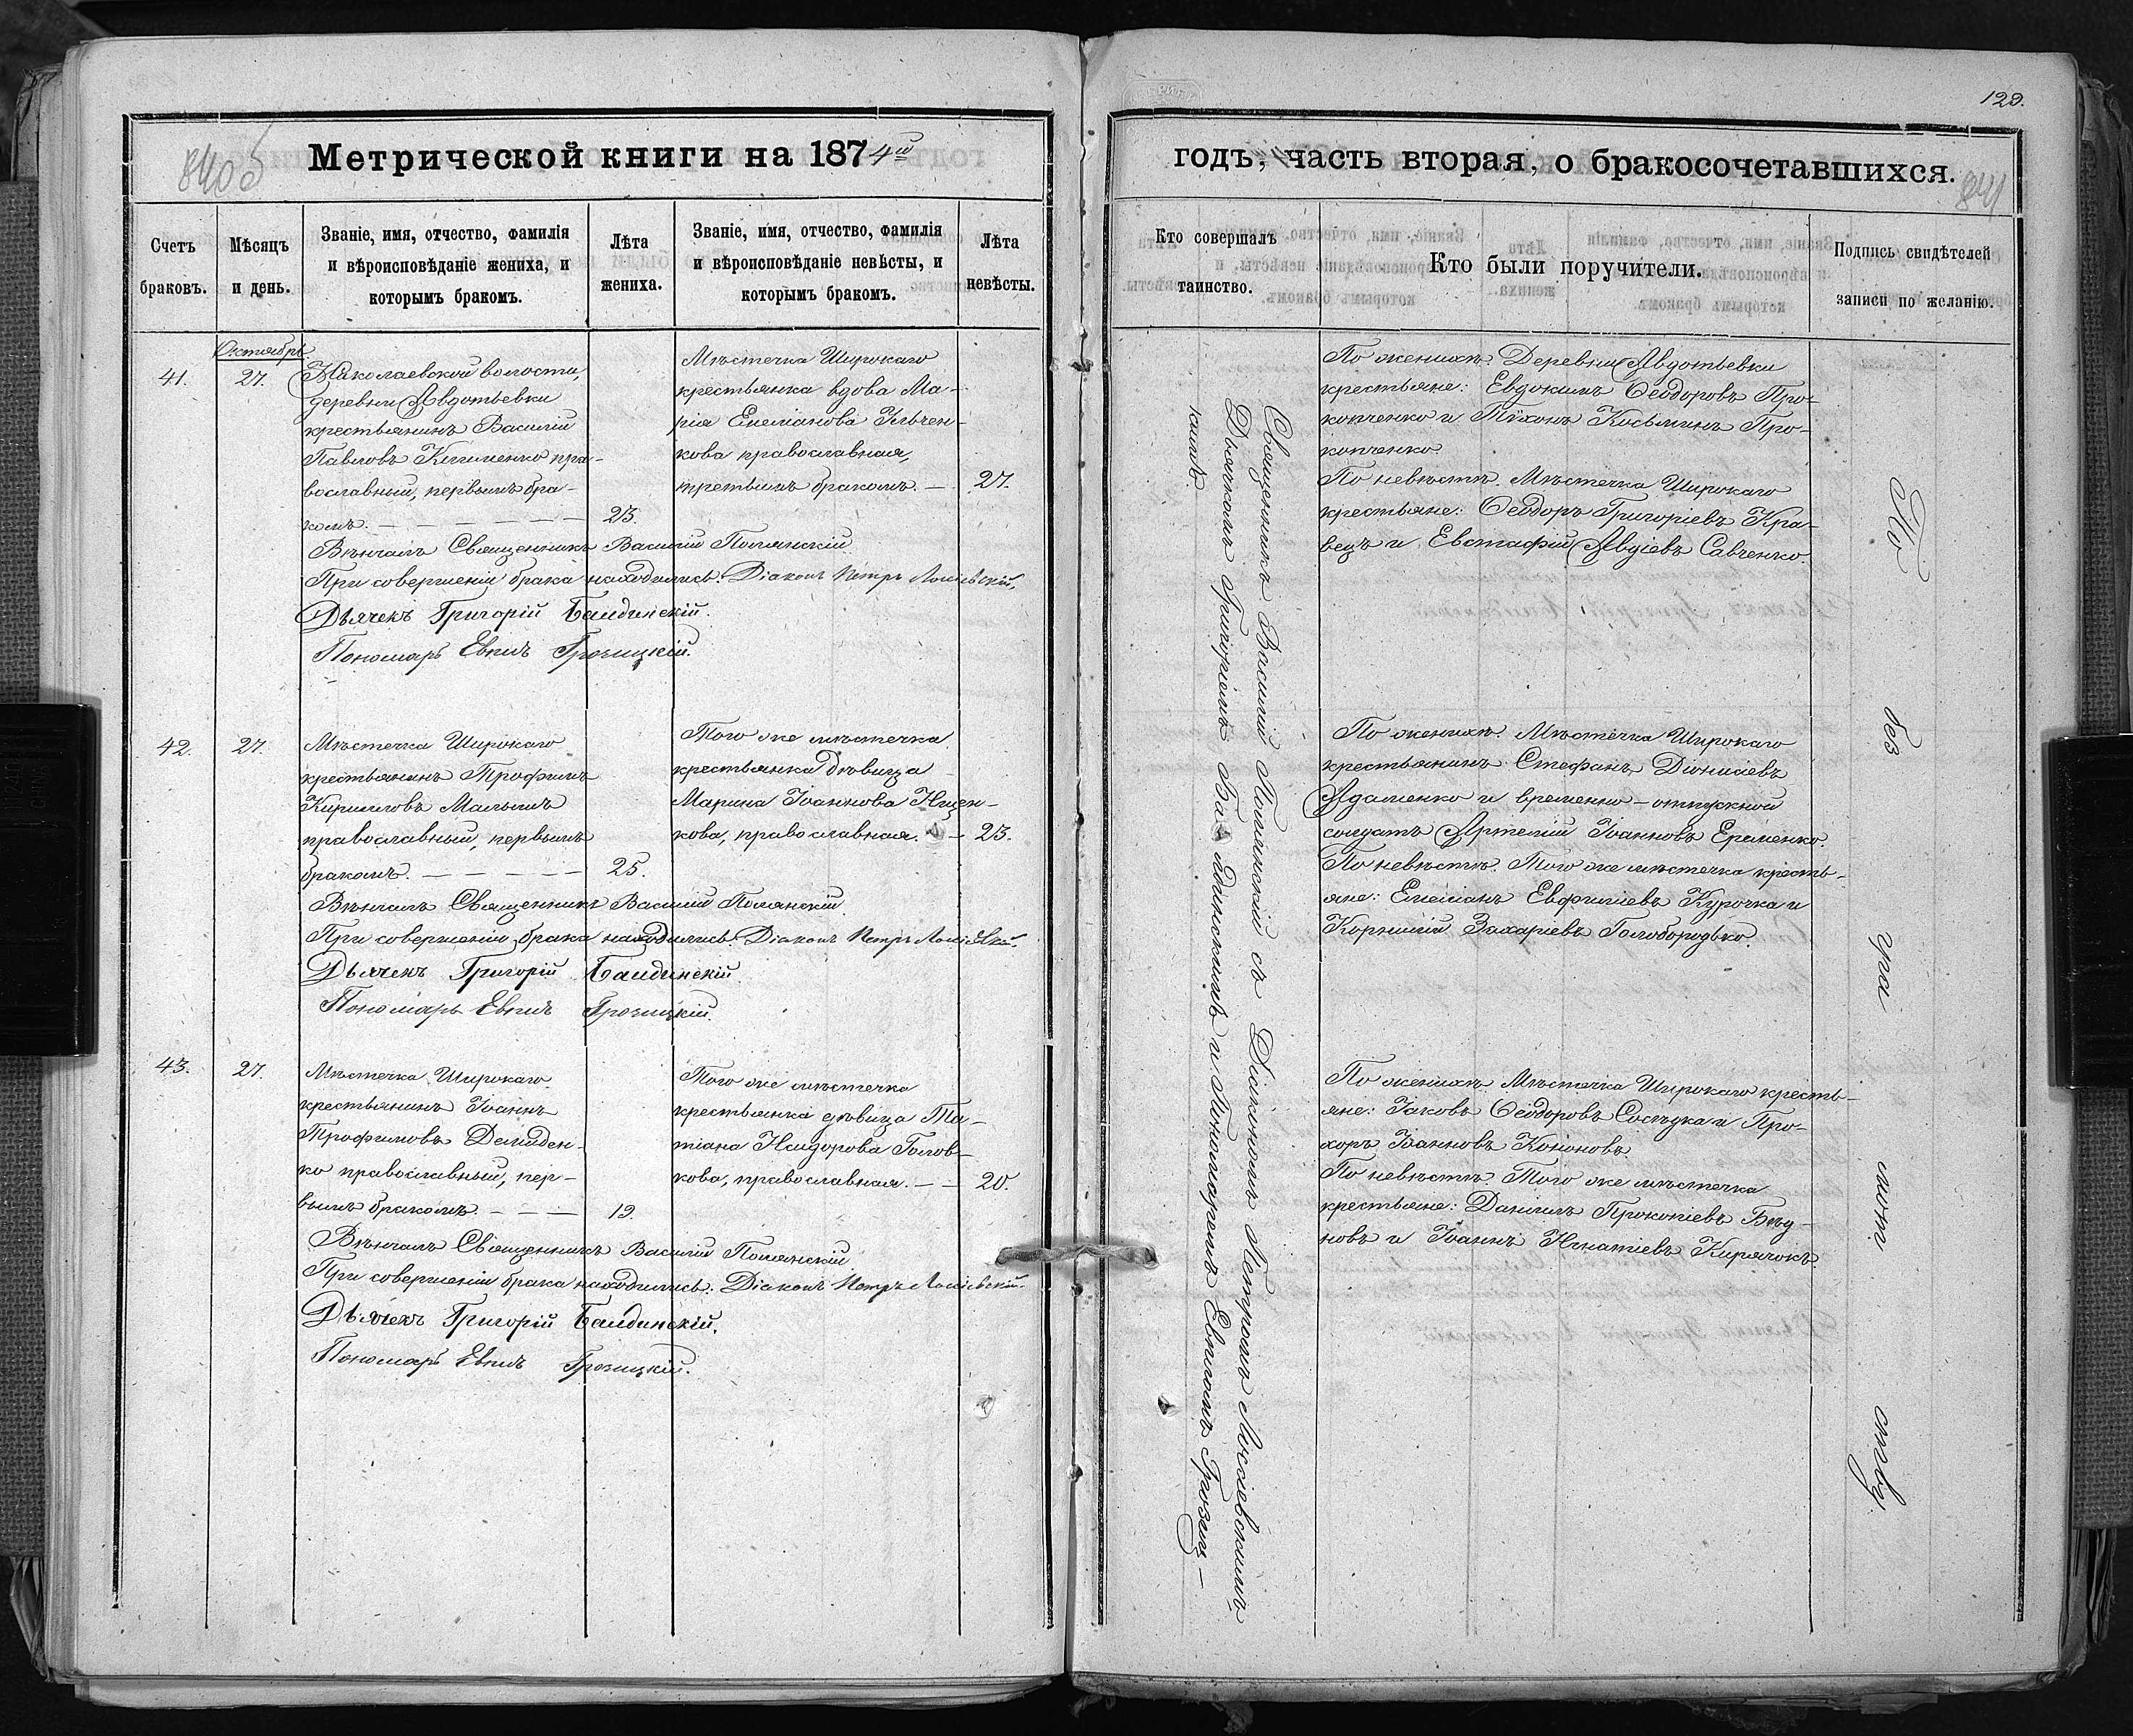 840 об
Метрической книги на 1874й
Счетъ браковъ.
Мѣсяцъ и день.
Званіе, имя, отчество, фамилія и вѣроисповѣданіе жениха, и которымъ бракомъ.
Лѣта жениха.
Званіе, имя, отчество, фамилія и вѣроисповѣданіе невѣсты, и которымъ бракомъ.
Лѣта невѣсты.
Октябрь
41.
27.
Николаевской волости,
деревни Авдотьевки
крестьянинъ Василій
Павловъ Клименко пра-
вославный, первымъ бра-
комъ. — — — — — —
23.
Мѣстечка Широкаго
крестьянка вдова Ма-
рія Емеліанова Ильчен-
кова православная,
третьимъ бракомъ. —
27.
Вѣнчалъ Священникъ Василій Полянскій
При совершеніи брака находились: Діаконъ Петръ
Дьячекъ Григорій
Пономарь
42.
27.
Мѣстечка Широкаго
крестьянинъ Трофимъ
Кирилловъ Малышъ
православный, первымъ
бракомъ. — — — — —
25.
Того же мѣстечка
крестьянка дѣвица
Марина Іоаннова Ищен-
кова, православная. —
23.
Вѣнчалъ Священникъ Василій Полянскій
При совершеніи брака находились: Діаконъ Петръ
Дьячекъ Григорій
Пономарь
43.
27.
Мѣстечка Широкаго
крестьянинъ Іоаннъ
Трофимовъ Демиден-
ко православный, пер-
вымъ бракомъ. — — —
19.
Того же мѣстечка
крестьянка дѣвица Та-
тіана Исидорова Голов-
кова, православная. — —
20.
Вѣнчалъ Священникъ Василій Полянскій
При совершеніи брака находились: Діаконъ Петръ
Дьячекъ Григорій
Пономарь
123.
годъ, часть вторая, о бракосочетавшихся.
841
Кто совершалъ таинство.
Кто были поручители.
Подпись свидѣтелей записи по желанію.
Священникъ Василій Полянскій съ Діакономъ Петромъ
Дьячкомъ Григоріемъ и Пономаремъ
По женихѣ: Деревни Авдотьевки
крестьяне: Евдокимъ Ѳеодоровъ Про-
копченко и Тихонъ Косьминъ Про-
копченко
По невѣстѣ: Мѣстечка Широкаго
крестьяне: Ѳеодоръ Григоріевъ Кра-
вецъ и Евстафій Авдіевъ Савченко.
По женихѣ: Мѣстечка Широкаго
крестьянинъ Стефанъ Діонисіевъ
Адаменко и временно-отпускной
солдатъ Артемій Іоанновъ Еременко.
По невѣстѣ: Того же мѣстечка кресть-
яне: Емеліанъ Евфиміевъ Курочка и
Корнилій Захаріевъ Голобородько.
По женихѣ: Мѣстечка Широкаго кресть-
яне: Іаковъ Ѳеодоровъ и Про-
хоръ Іоанновъ Кононовъ
По невѣстѣ: Того же мѣстечка
крестьяне: Даніилъ Прокопіевъ Бѣгу-
новъ и Іоаннъ Игнатіевъ Кирячокъ.